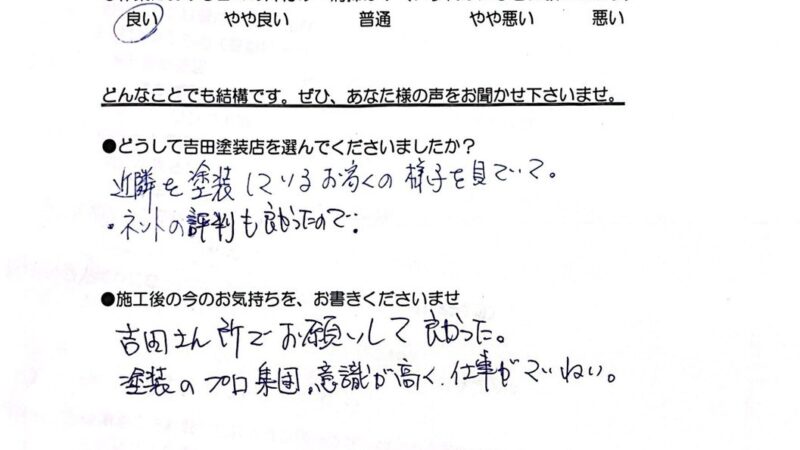 良い　やや良い　普通　やや悪い　悪い
どんなことでも結構です。ぜひ、あなた様の声をお聞かせ下さいませ。
●どうして吉田塗装店を選んでくださいましたか？
近隣を塗装しているお宅の様子を見ていて。
・ネットの評判も良かったので。
●施工後の今のお気持ちを、お書きくださいませ
吉田さん所でお願いして良かった。
塗装のプロ集団。意識が高く、仕事がていねい。